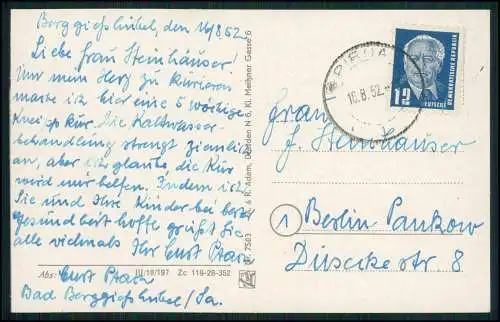 Berggießhübel, den 16/8.52.
Liebe Frau Steinhäuser!
Um mein Herz zu kurieren
mache ich hier eine 5 wöchige
Kneippkur. Die Kaltwasser-
behandlung strengt ziemlich
an, aber ich glaube, die Kur
wird mir helfen. Indem ich
Sie und Ihre Kinder bei bester
Gesundheit hoffe grüßt Sie
alle vielmals Ihr Curt
Abs: Curt
Bad Berggießhübel/Sa.
III/18/197 Zc 119-28-352
& R. Adam, Dresden N 6, Kl. Meißner Gasse 6
PIRNA
16.8.52.
12
DEUTSCHE
DEMOKRATISCHE REPUBLIK
Frau
J. Steinhäuser
1 Berlin Pankow
Straße 8